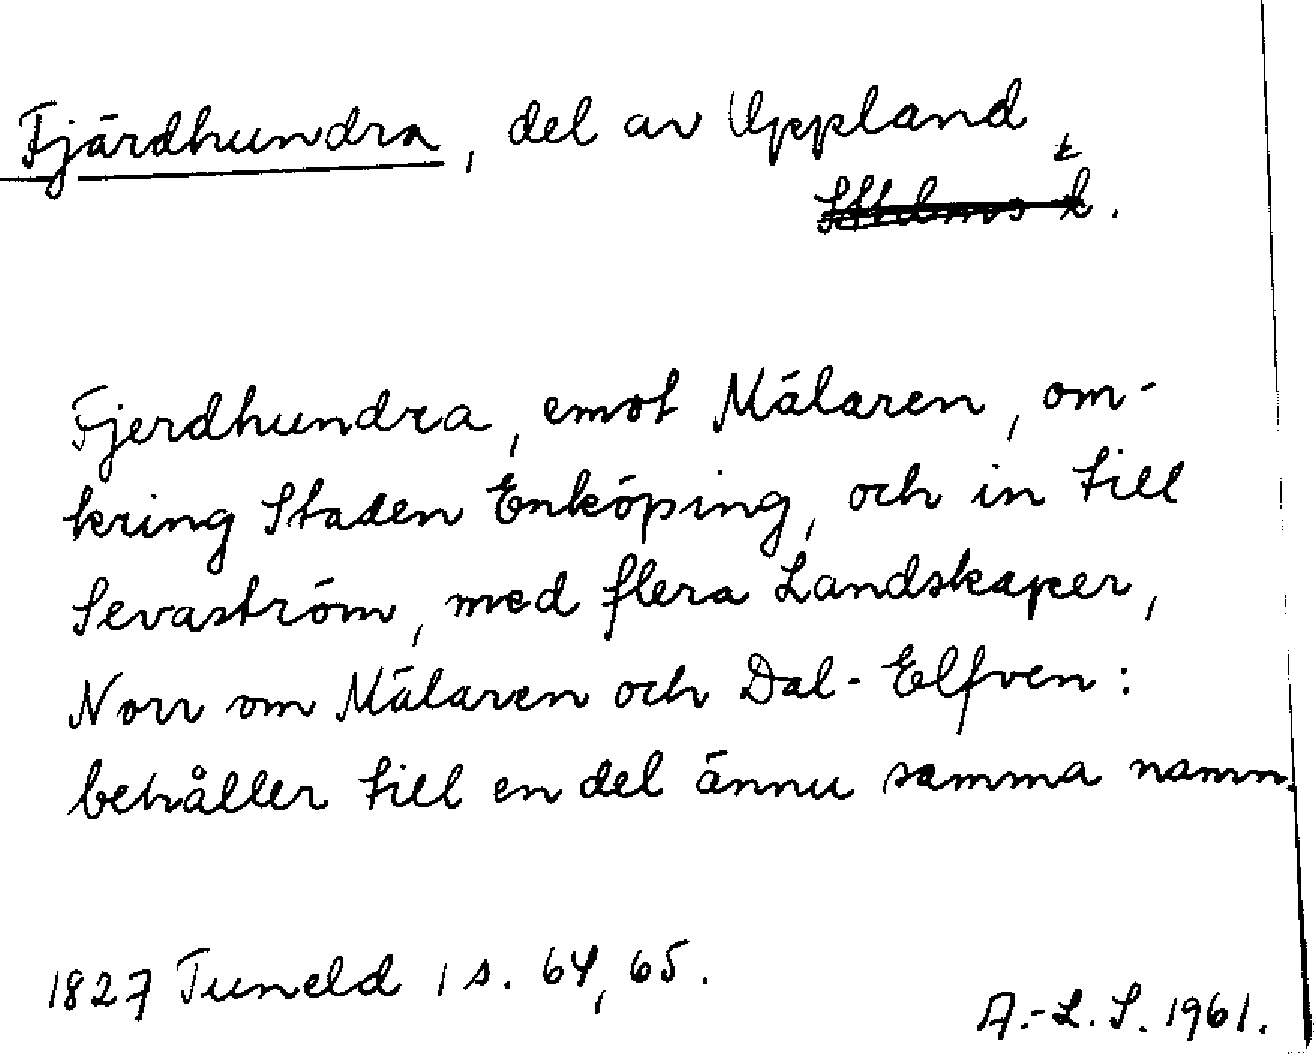 Fjärdhundra, del av Uppland,
Fjerdhundra, emot Mälaren, om-
kring Staden Enköping, och in till
Sevaström, med flera Landskaper,
Norr om Mälaren och Dal-Elfven:
behåller till en del ännu samma namn.
1827 Tuneld 1 s. 64, 65.
A.-L. S. 1961.